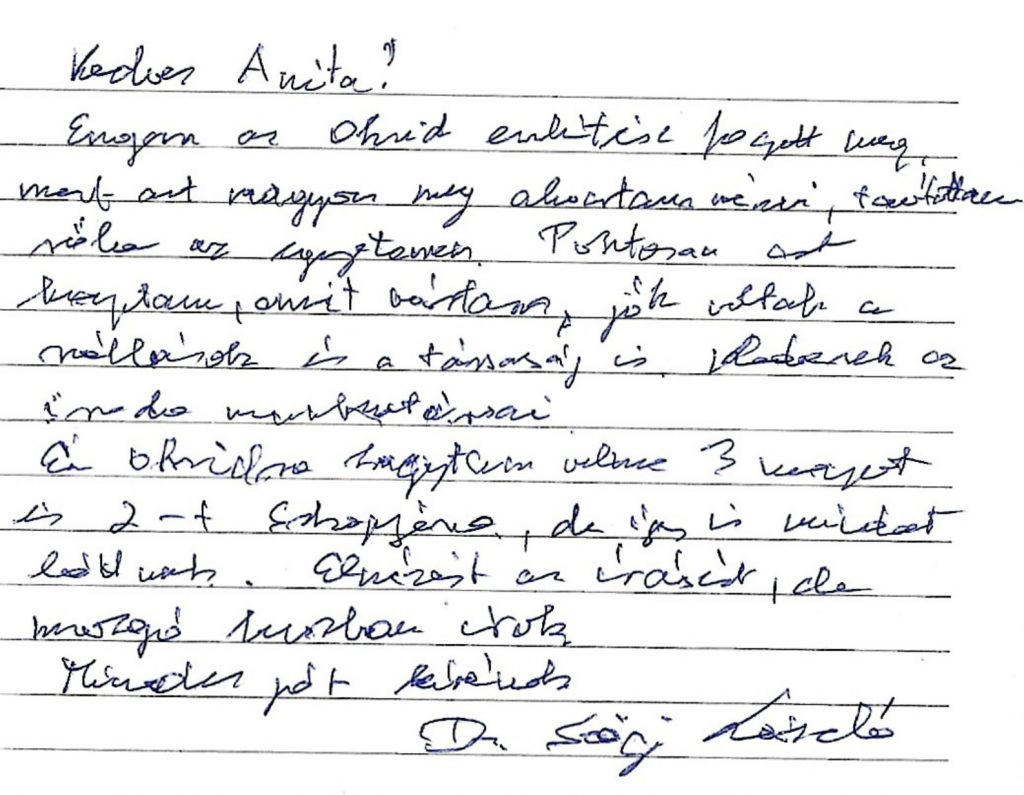 Kedves Anita!
Engem az Ohrid említése fogott meg,
mert azt nagyon meg akartam nézni, tanítottam
róla az egyetemen. Pontosan azt
kaptam, amit vártam, jók voltak a
szállások és a társaság is. az
iroda munkatársai
Én Ohridra hagytam volna 3 napot
és 2-t Szkopjéra, de így is mindent
láttunk. Elnézést az írásért, de
mozgó buszban írok
Minden jót kívánok
Dr. Szögi László